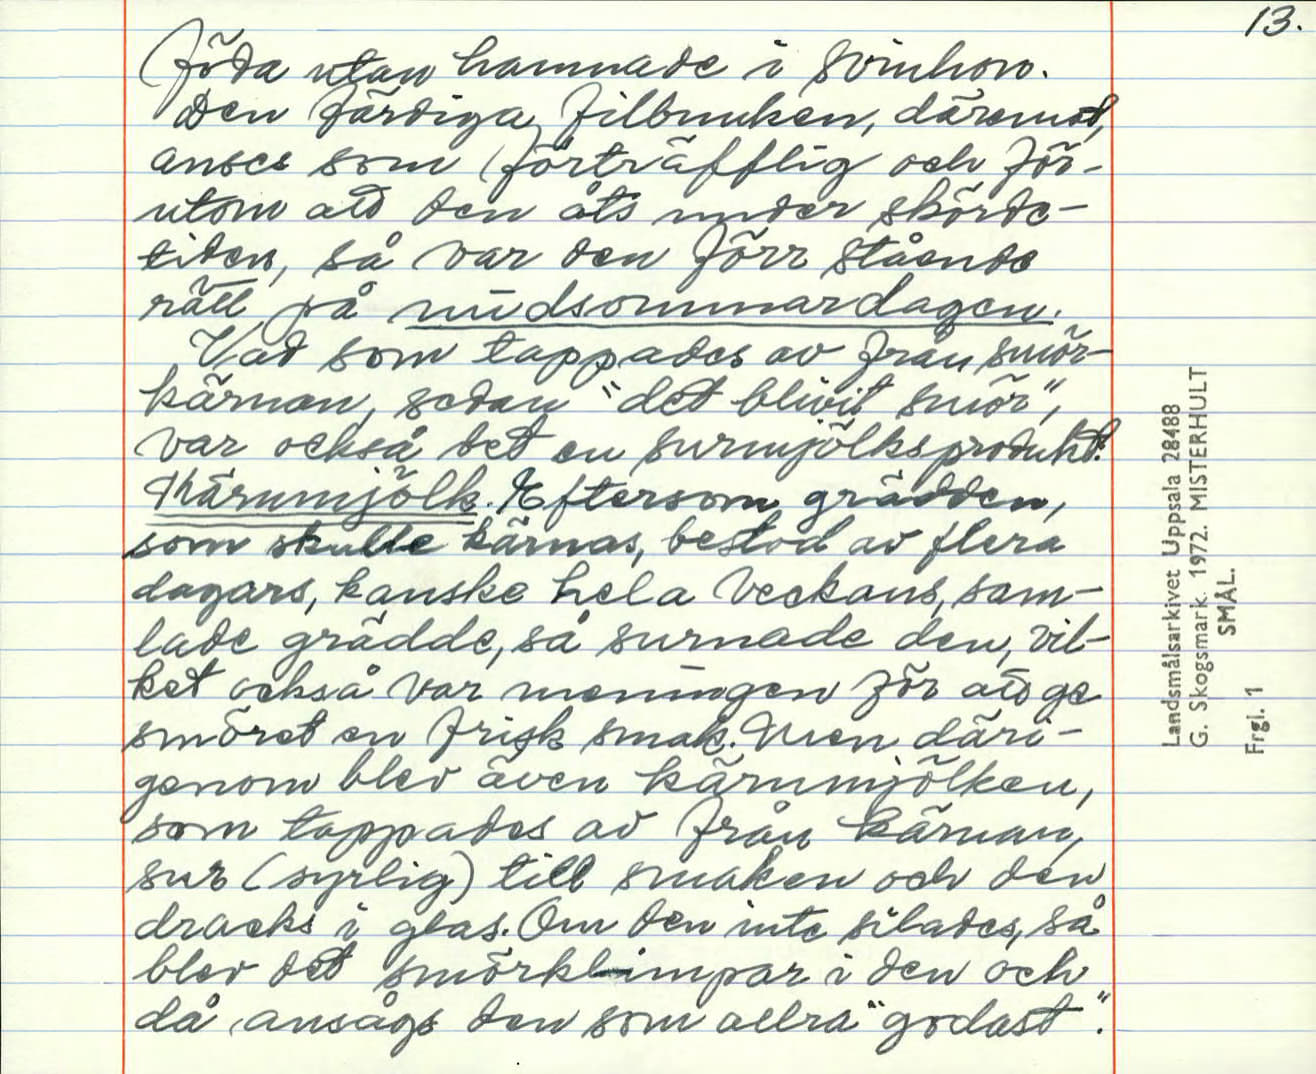 13.
föda utan hamnade i svinhon.
Den färdiga filbunken, däremot,
anses som förträfflig och för-
utom att den åts under skörde-
tiden, så var den förr stående
rätt på midsommardagen.
Vad som tappades av från smör-
kärnan, sedan "det blivit smör",
var också det en surmjölksprodukt:
Kärnmjölk. Eftersom grädden,
som skulle kärnas, bestod av flera
dagars, kanske hela veckans, sam-
lade grädde, så surnade den, vil-
ket också var meningen för att ge
smöret en frisk smak. Men däri-
genom blev även kärnmjölken,
som tappades av från kärnan,
sur (syrlig) till smaken och den
dracks i glas. Om den inte silades, så
blev det smörklimpar i den och
då ansågs den som allra "godast".
Landsmålsarkivet Uppsala 28488
G. Skogsmark. 1972. MISTERHULT
SMÅL.
Frgl. 1